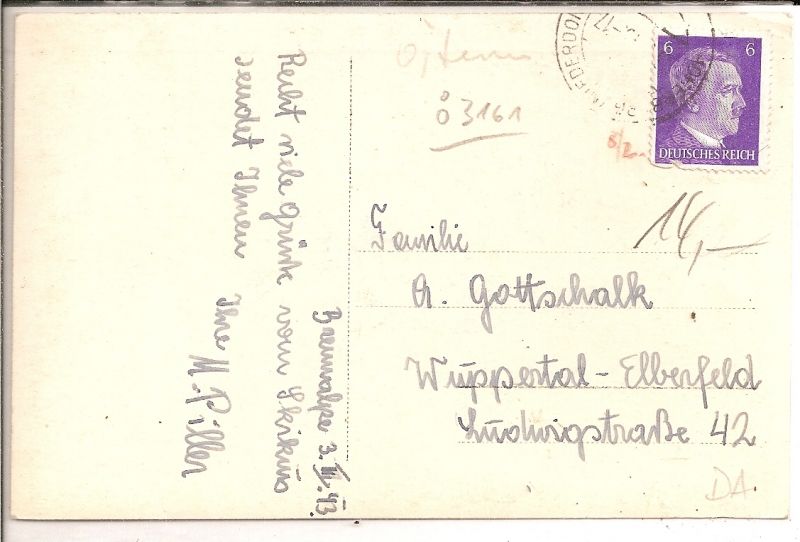 Braunalpe 3.III.43.
Recht viele Grüße vom Skikurs
sendet Ihnen Ihre M. Piller
Ö 3161
NIEDERDO
6 6
DEUTSCHES REICH
14,-
Familie
A. Gottschalk
Wuppertal-Elberfeld
Ludwigstraße 42
DA.